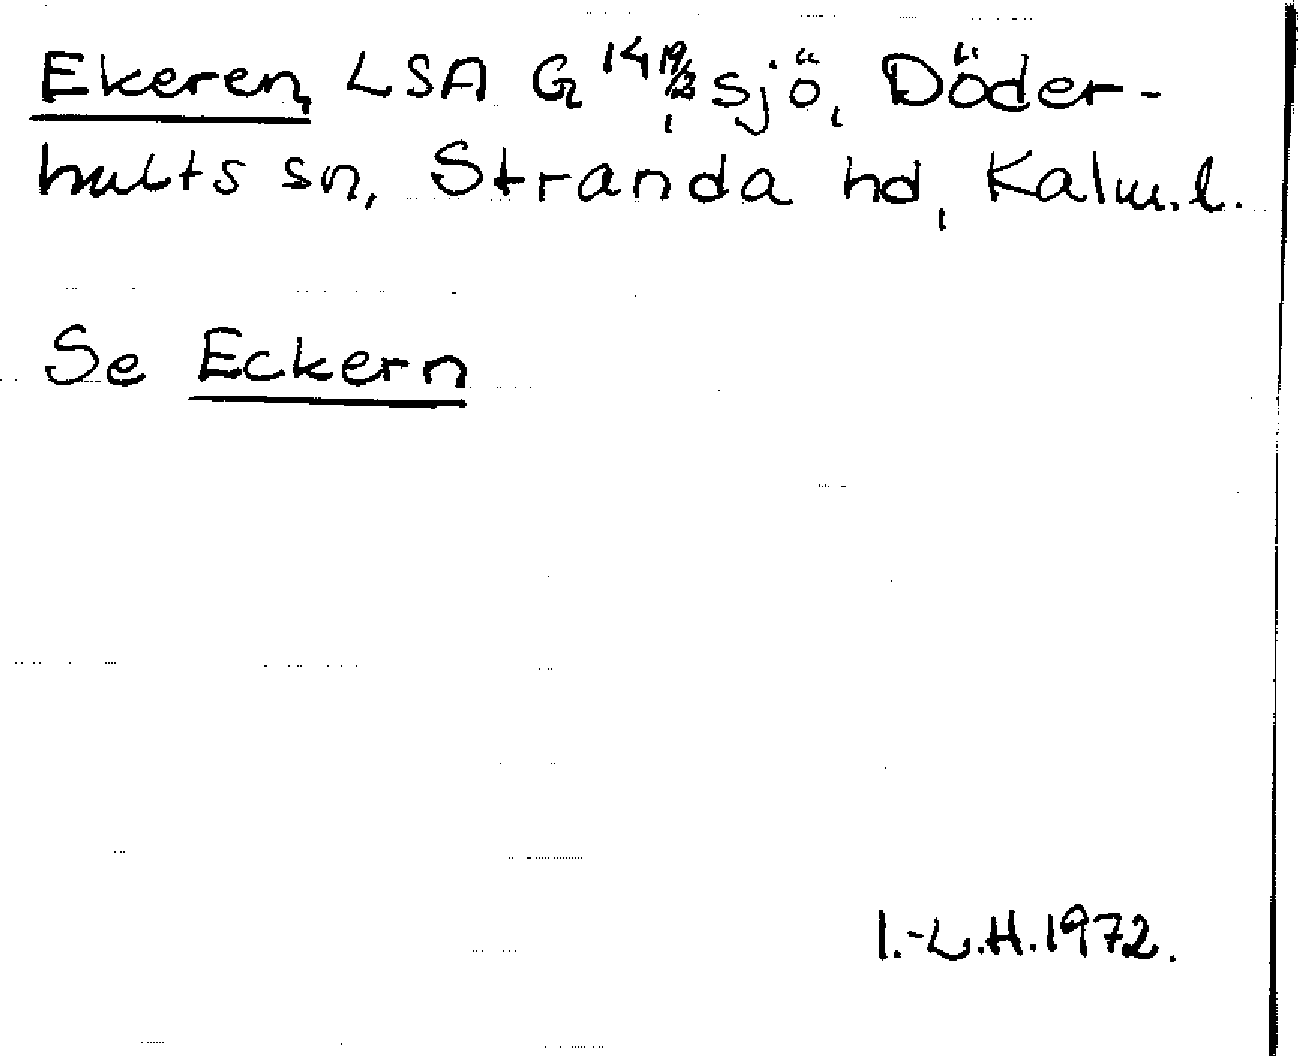 Ekeren, LSA G 14 19/2, sjö, Döder-
hults sn, Stranda hd, Kalm.l.
Se Eckern
I.-L.H.1972.